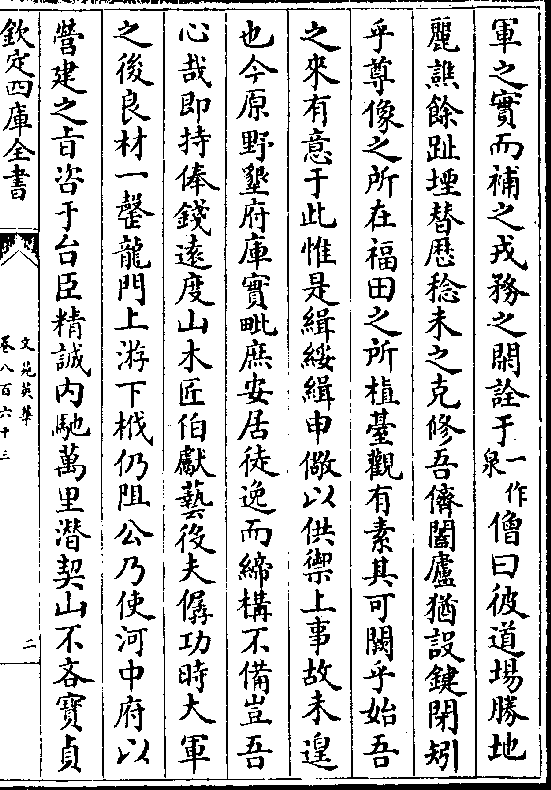 軍之實而補之戎務之閑詮于一作泉僧曰彼道場勝地
麗譙餘趾堙替歴稔未之克修吾儕闔廬猶設鍵閉矧
乎尊像之所在福田之所植臺觀有素其可闕乎始吾
之來有意于此惟是緝綏緝申儆以供禦上事故未遑
也今原野墾府庫實毗庶安居徒逸而締構不備豈吾
心哉即持俸錢遠度山木匠伯獻藝役夫僝功時大軍
之後良材一罄龍門上游下栰仍阻公乃使河中府以
營建之旨咨于台臣精誠内馳萬里潜契山不吝寶貞
欽定四庫全書
文苑英華
卷八百六十三
二